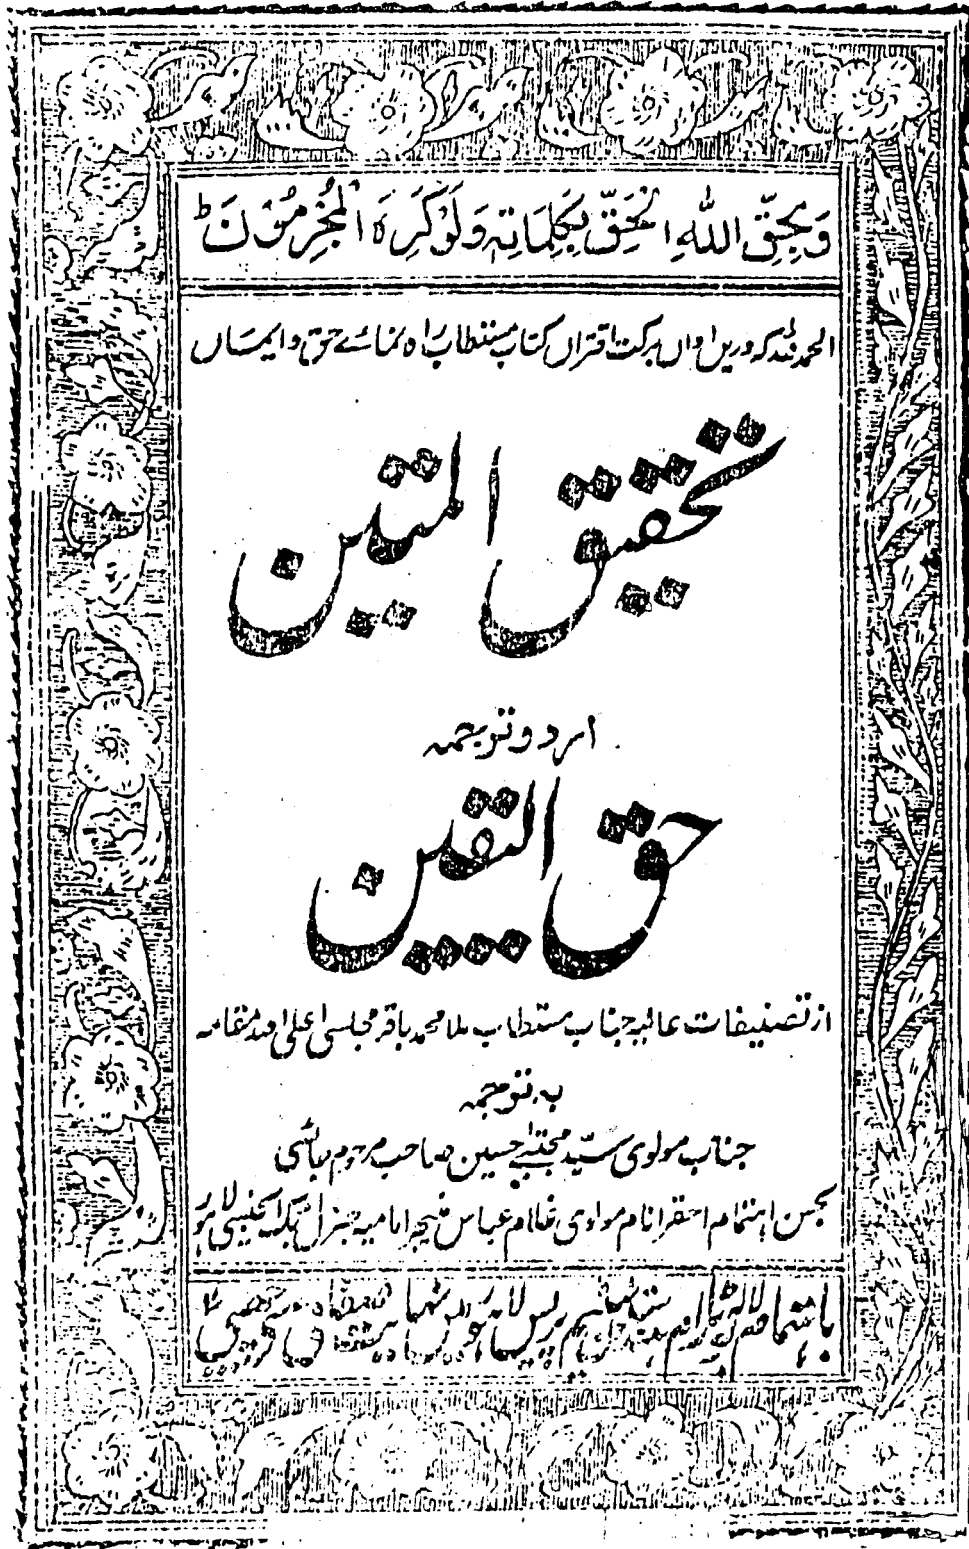 وَيُحِقُّ اللّٰهُ الْحَقَّ بِكَلِمَاتِهٖ وَلَوْ كَرِهَ الْمُجْرِمُوْنَ ط
الحمد للہ کہ دریں اواں برکت اقتراں کتاب مستطاب راہ نمائے حق و ایمساں
تحقیق المتین
اردو ترجمہ
حق الیقین
از تصنیفات عالیہ جناب مستطاب ملا محمد باقر مجلسی اعلی اللہ مقامہ
بہ ترجمہ
جناب مولوی سیّد مجتبیٰ حسین صاحب مرحوم
بحسن اہتمام احقر انام مولوی غلام عباس منیجر امامیہ جنرل بک ایجنسی لاہور
باہتمام لالہ پریس لاہور